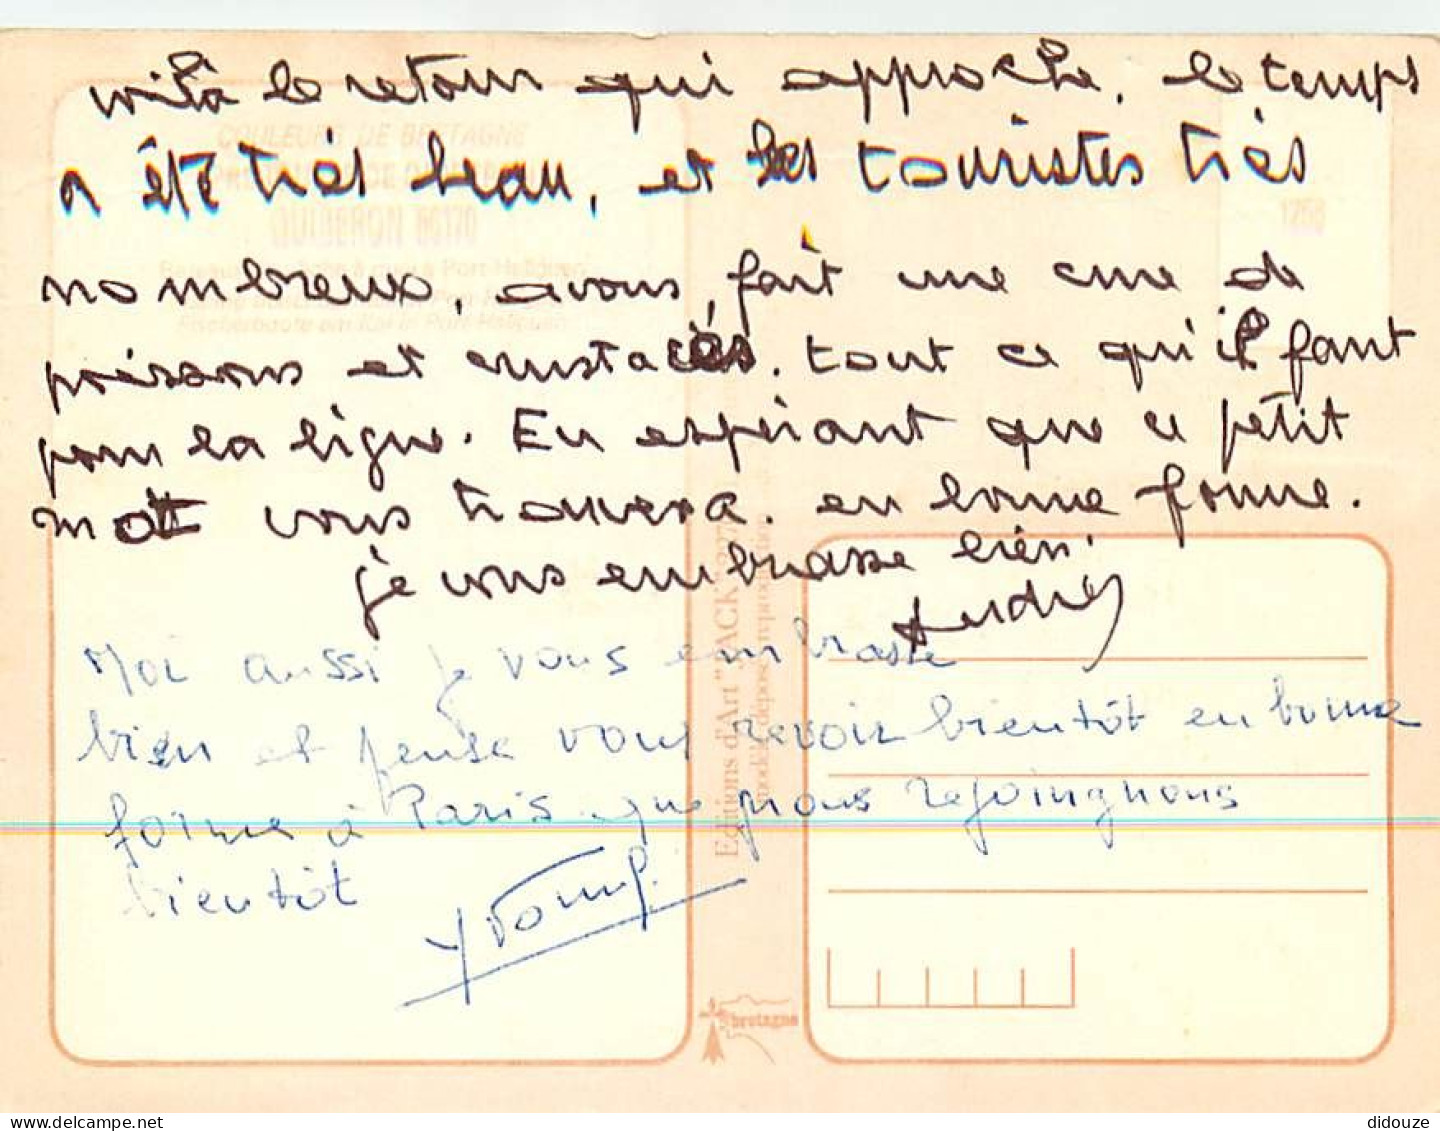 voilà le retour qui approche, le temps
a été très beau, et les touristes très
nombreux, avons, fait une cure de
poissons et crustacés. tout ce qu'il faut
pour la ligne. En espérant que ce petit
mot vous trouvera. en bonne forme.
je vous embrasse bien.
Moi aussi je vous embrasse
bien et pense vous revoir bientôt en bonne
forme à Paris que nous rejoingnons
bientôt
COULEURS DE BRETAGNE
QUIBERON 56170
Editions d'Art "JACK"
bretagne
didouze